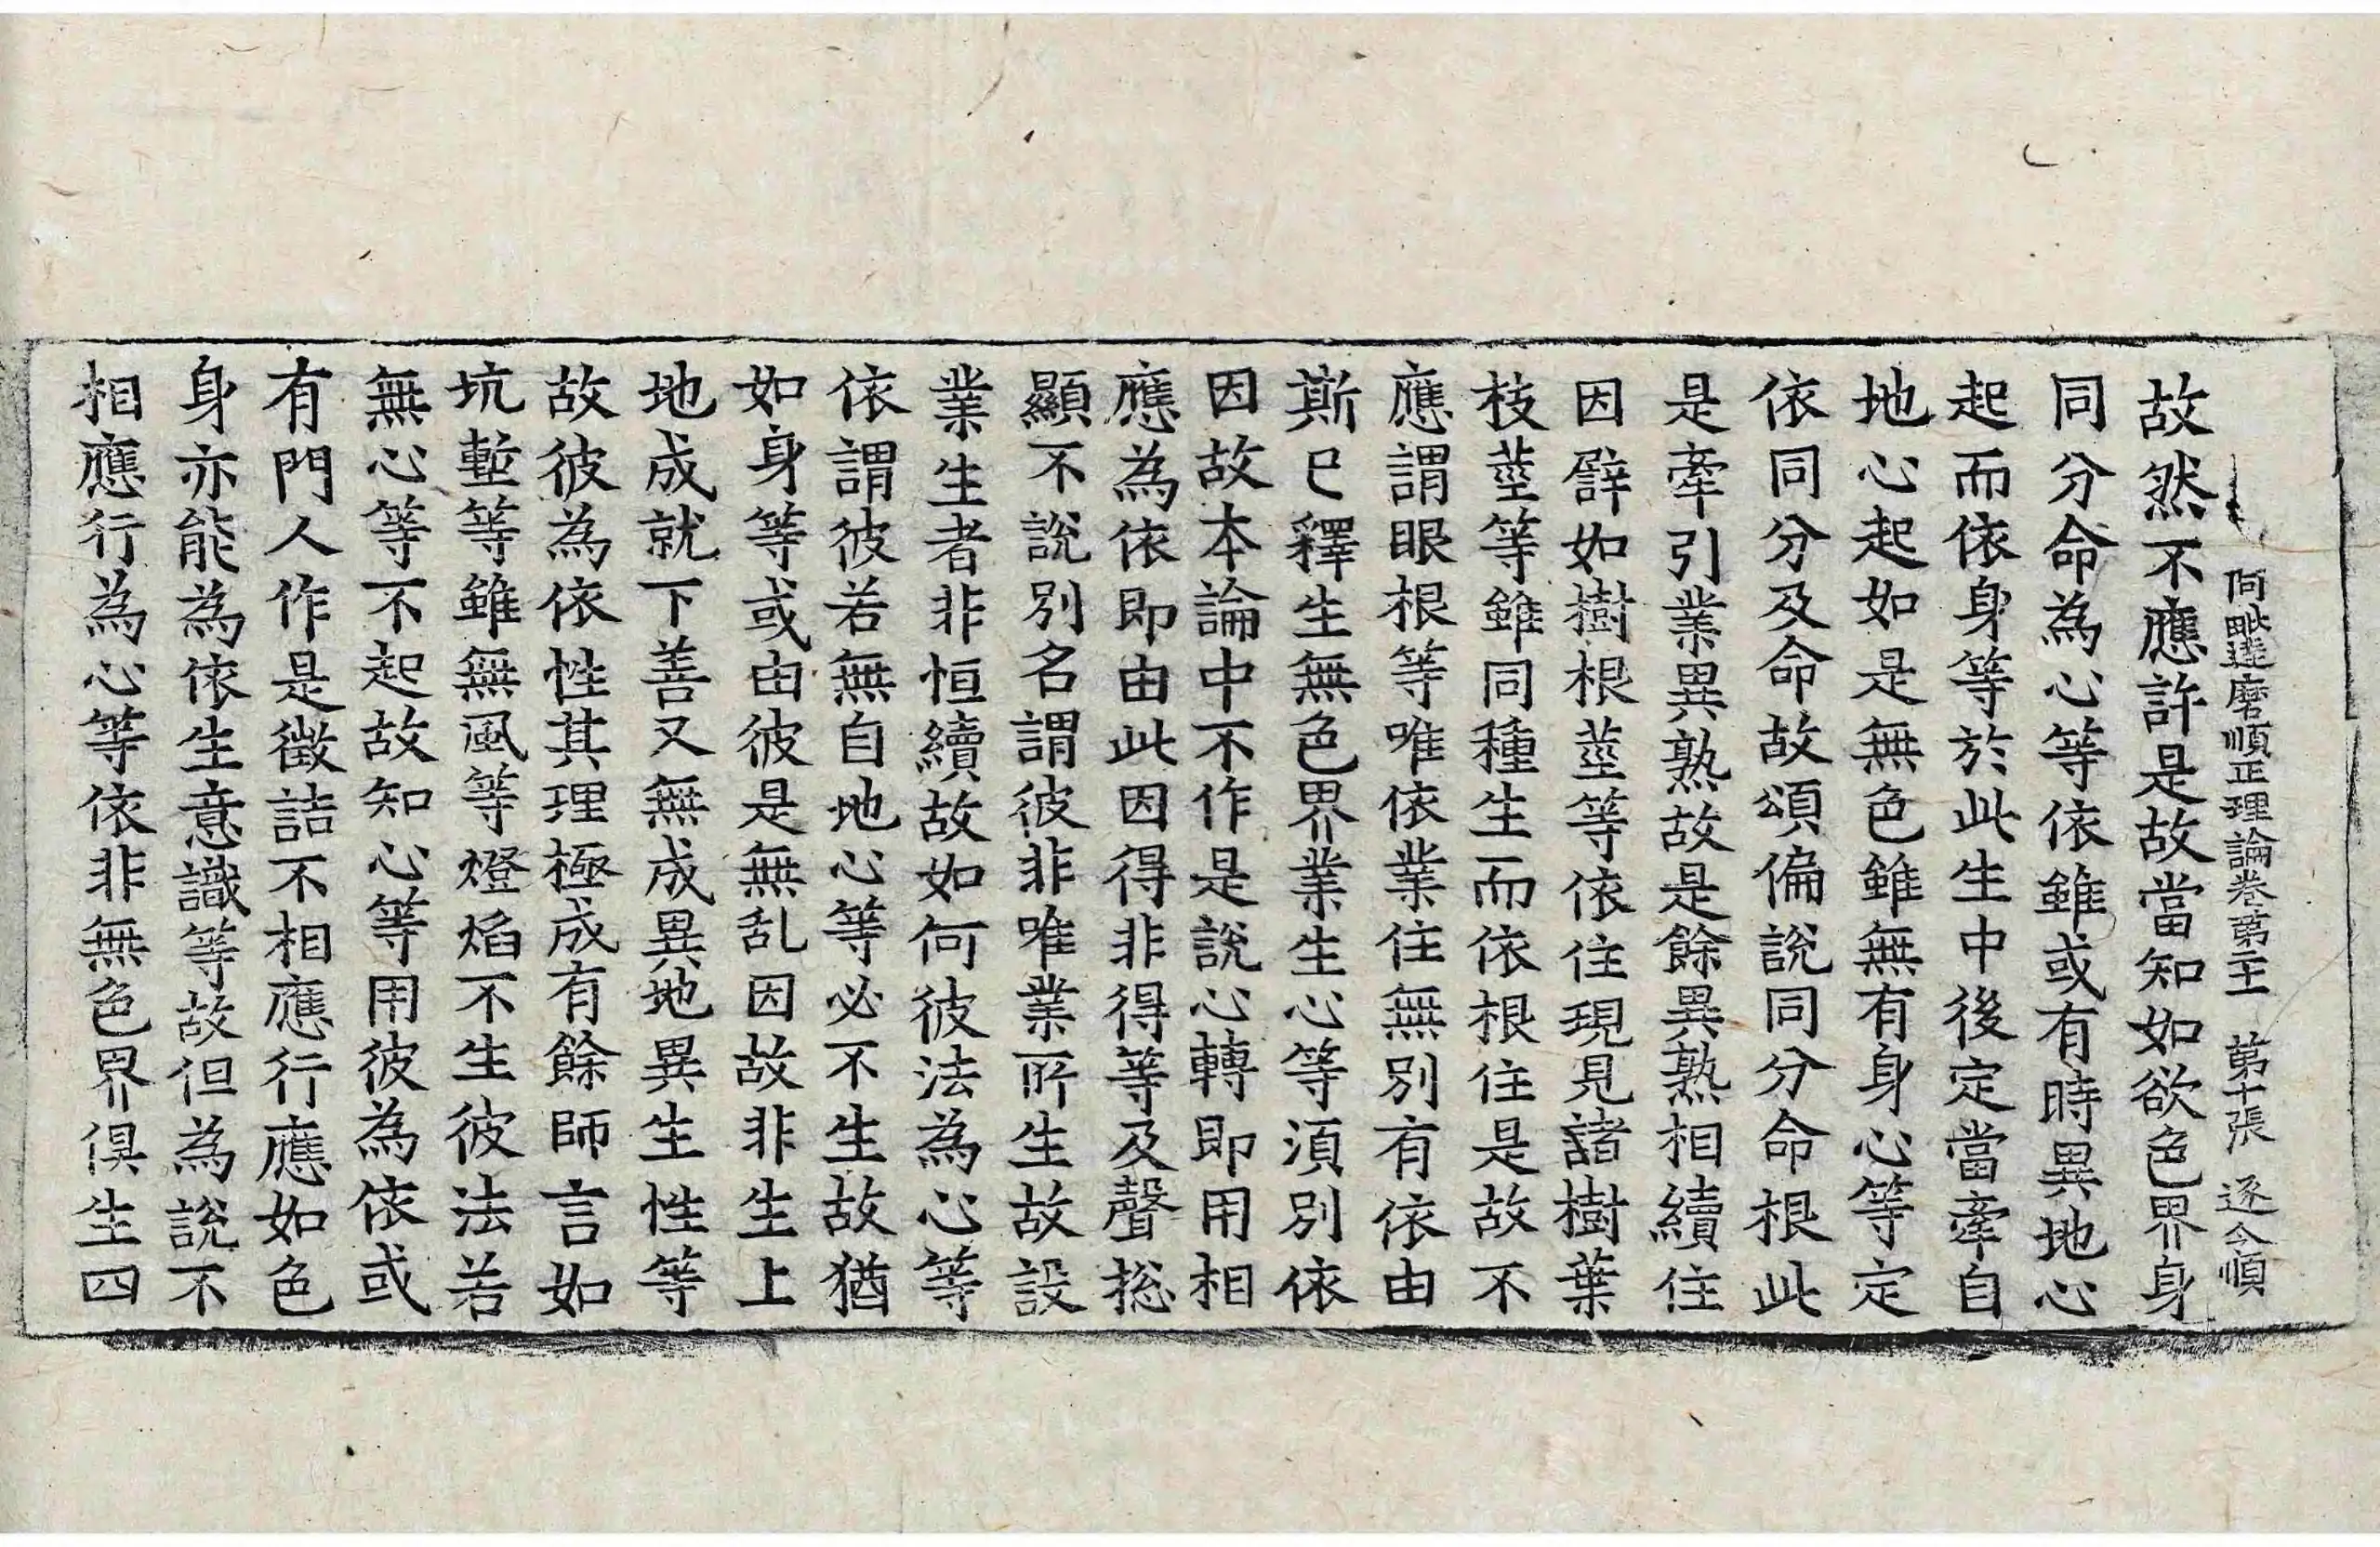 阿毗達磨順正理論卷第二十一 第十張 逐今順
故然不應許是故當知如欲色界身
同分命為心等依雖或有時異地心
起而依身等於此生中後定當牽自
地心起如是無色雖無有身心等定
依同分及命故頌偏說同分命根此
是牽引業異熟故是餘異熟相續住
因辟如樹根莖等依住現見諸樹葉
枝莖等雖同種生而依根住是故不
應謂眼根等唯依業住無別有依由
斯已釋生無色界業生心等湏別依
因故本論中不作是說心轉即用相
應為依即由此因得非得等及聲捴
顯不說別名謂彼非唯業所生故設
業生者非恒續故如何彼法為心等
依謂彼若無自地心等必不生故猶
如身等或由彼是無亂因故非生上
地成就下善又無成異地異生性等
故彼為依性其理極成有餘師言如
坑塹等雖無風等燈焰不生彼法若
無心等不起故知心等用彼為依或
有門人作是徵詰不相應行應如色
身亦能為依生意識等故但為說不
相應行為心等依非無色界俱生四